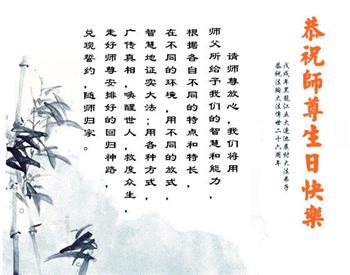 恭祝師尊生日快樂
戊戌年黑龍江五大連池農村大法弟子
恭祝法輪大法傳世二十六周年
请师尊放心，我们将用
师父所给予我们的智慧和能力，
根据各自不同的特点和特长，
在不同的环境，用不同的放式，
智慧地证实大法；用各种方式，
广传真相，唤醒世人，救度众生，
走好师尊安排好的回归神路，
兑现誓约，随师归家。